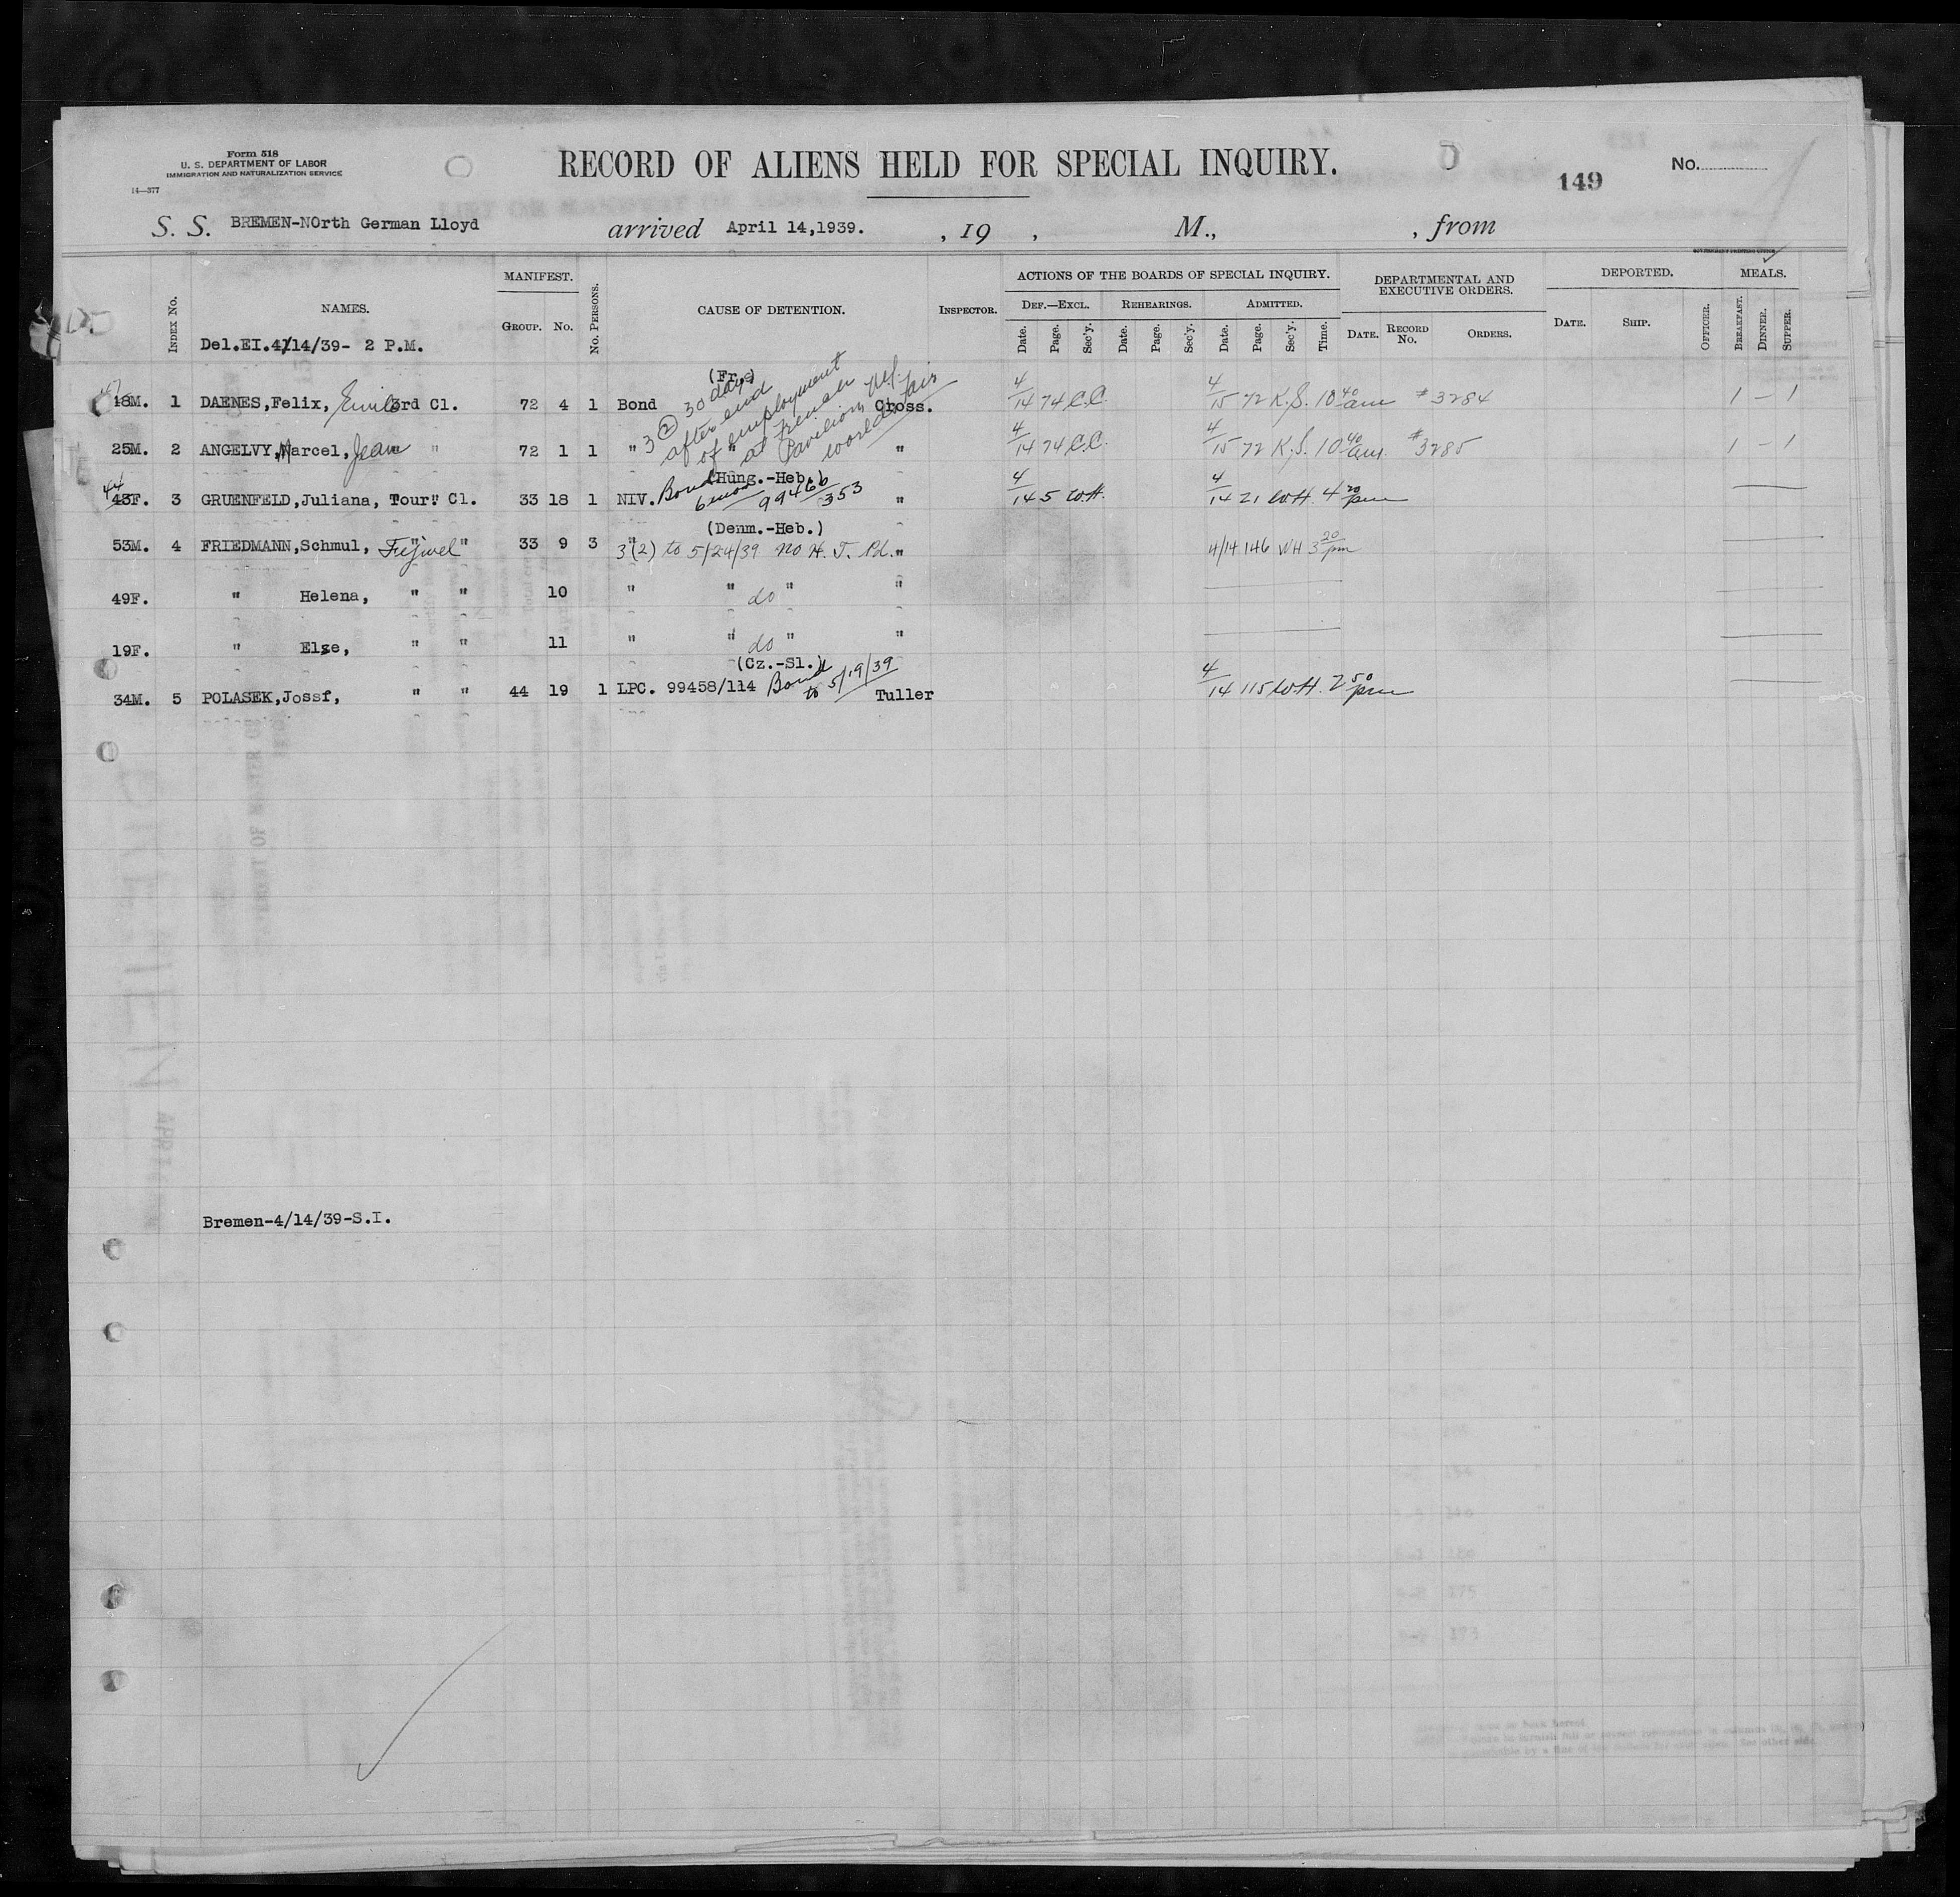 Form 518
U. S. DEPARTMENT OF LABOR
IMMIGRATION AND NATURALIZATION SERVICE
14—377
RECORD OF ALIENS HELD FOR SPECIAL INQUIRY.
149
No.
S. S. BREMEN-NOrth German Lloyd arrived April 14,1939. , 19 , M., , from
INDEX No.
NAMES.
MANIFEST.
GROUP. No.
No. PERSONS.
CAUSE OF DETENTION.
INSPECTOR.
ACTIONS OF THE BOARDS OF SPECIAL INQUIRY.
DEF.—EXCL. REHEARINGS. ADMITTED.
Date. Page. Sec'y. Date. Page. Sec'y. Date. Page. Sec'y. Time.
DEPARTMENTAL AND EXECUTIVE ORDERS.
DATE. RECORD No. ORDERS.
DEPORTED.
DATE. SHIP. OFFICER.
MEALS.
BREAKFAST. DINNER. SUPPER.
Del.EI.4/14/39- 2 P.M.
(Fr.)
18M. 1 DAENES,Felix, Emile 3rd Cl. 72 4 1 Bond Cross. 4/14 74 C.C. 4/15 72 K.S. 10 40 am #3284 1 – 1
3 (2) 30 days after end of employment at French Pavilion World's Fair
25M. 2 ANGELVY,Marcel, Jean " " 72 1 1 " " " 4/14 74 C.C. 4/15 72 K.S. 10 40 am. #3285 1 – 1
(Hung.-Heb.)
44
43F. 3 GRUENFELD,Juliana, Tour" Cl. 33 18 1 NIV. Bond 6 mos 99466/353 " 4/14 5 W.H. 4/14 21 W.H. 4 20 pm
(Denm.-Heb.)
53M. 4 FRIEDMANN,Schmul, " " 33 9 3 " 3(2) to 5/24/39 no H. T. Pd. " 4/14 146 WH 3 20 pm
49F. " Helena, " " 10 " " do " "
19F. " Else, " " 11 " " do " "
(Cz.-Sl.)
34M. 5 POLASEK,Jossf, " " 44 19 1 LPC. 99458/114 Bond to 5/19/39 Tuller 4/14 115 W.H. 2 50 pm
Bremen-4/14/39-S.I.